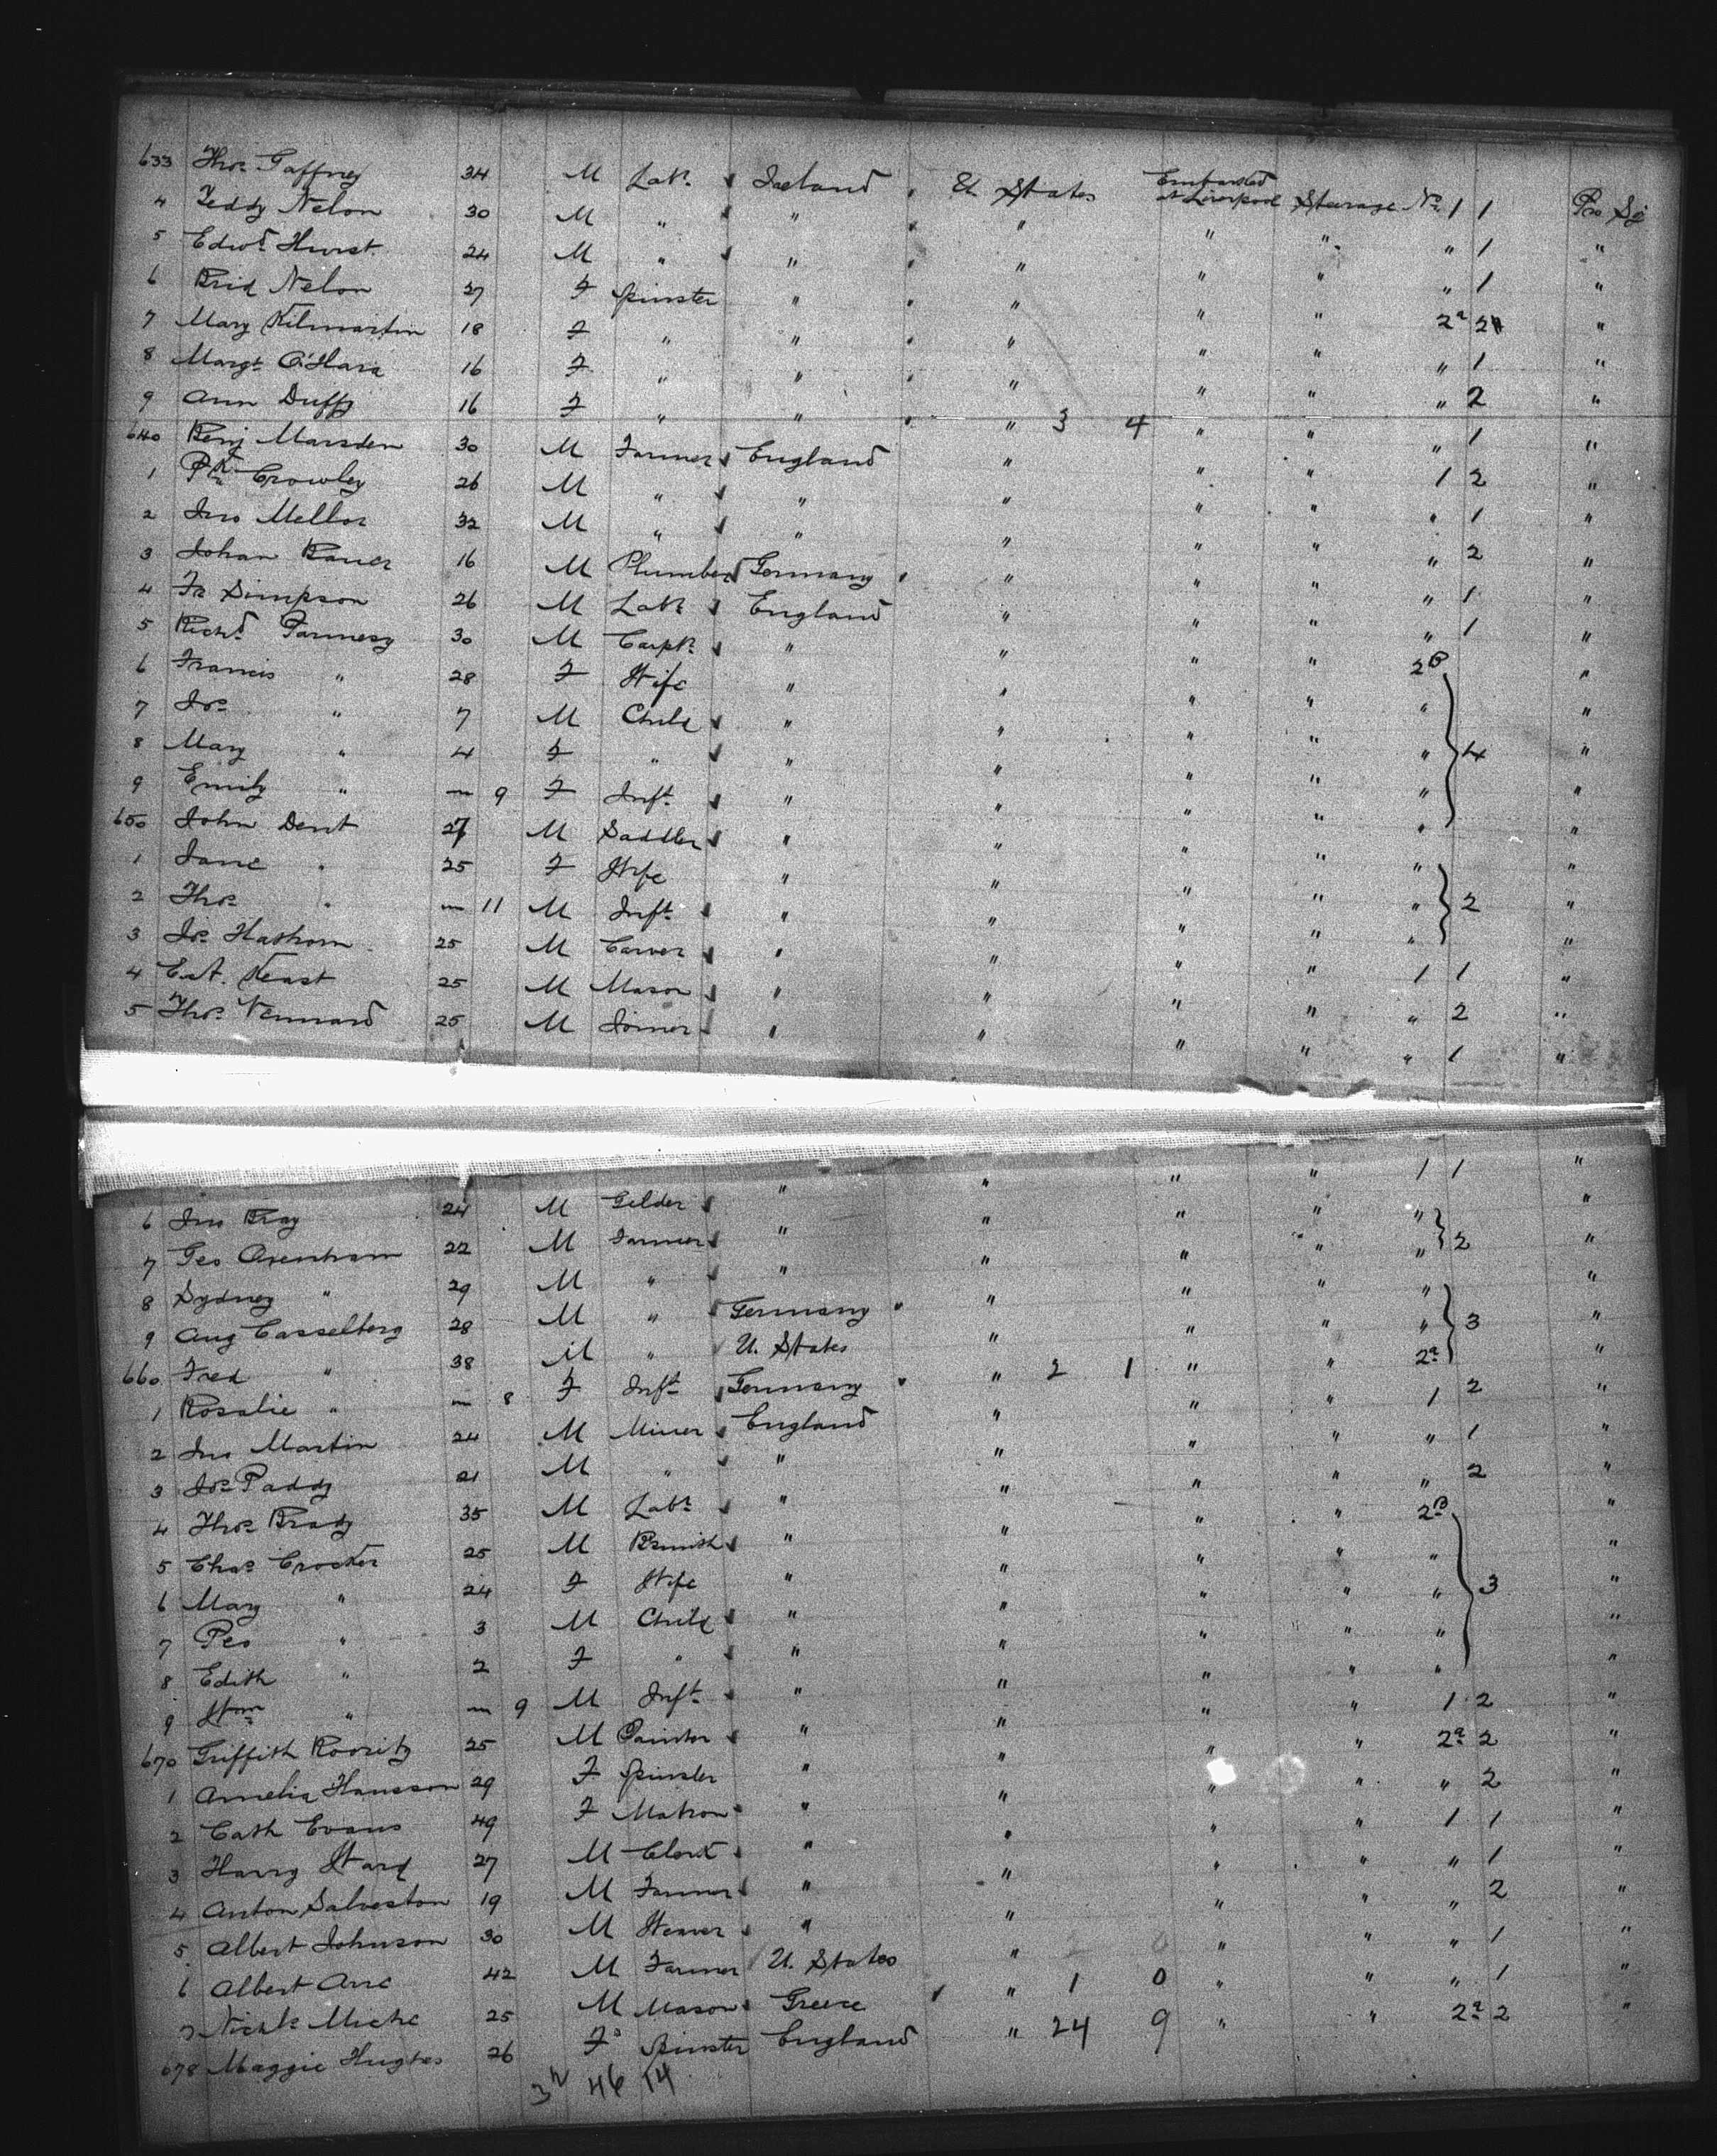 633 Thos Gaffney 34 M Labr Ireland U. States Embarked at Liverpool Steerage No 1 1 Pro Sj
4 Teddy Nelon 30 M " " " " " " 1 "
5 Edwd Hurst 24 M " " " " " " 1 "
6 Brid Nelon 27 F Spinster " " " " 2a 2 "
7 Mary Kilmartin 18 F " " " " " " 1 "
8 Margt O'Hara 16 F " " " " " " 2 "
9 Ann Duffy 16 F " " " 3 4 " " " 1 "
640 Benj Marsden 30 M Farmer England " " " 1 2 "
1 Pk Crowley 26 M " " " " " " 1 "
2 Jno Mellor 32 M " " " " " " 2 "
3 Johan Bauer 16 M Plumber Germany " " " " 1 "
4 Fr Simpson 26 M Labr England " " " " 1 "
5 Richd 30 M Carpr " " " " 2B "
6 Francis " 28 F Wife " " " " " "
7 Jos " 7 M Child " " " " " 4 "
8 Mary " 4 F " " " " " " "
9 Emily " 9 F Inft " " " " " "
650 John Dent 27 M Saddler " " " " " "
1 Jane " 25 F Wife " " " " " 2 "
2 Thos " 11 M Inft " " " " " "
3 Jos 25 M Carver " " " " 1 1 "
4 Keast 25 M Mason " " " " " 2 "
5 Thos Vennard 25 M Joiner " " " " " 1 "
6 Jno Bray 24 M Gilder " " " " 1 1 "
7 Geo Axenham 22 M Farmer " " " " " "
8 Sydney " 29 M " " " " " " 2 "
9 Aug Casselberg 28 M " Germany " " " " "
660 Fred " 38 M " U. States " " " " 3 "
1 Rosalie " 8 F Inft Germany " 2 1 " " 2a "
2 Jno Martin 24 M Miner England " " " 1 2 "
3 Jos Paddy 21 M " " " " " " 1 "
4 Thos Brady 35 M Labr " " " " " 2 "
5 Chas Crocker 25 M " " " " 2B "
6 Mary " 24 F Wife " " " " " "
7 " 3 M Child " " " " " 3 "
8 Edith " 2 F " " " " " " "
9 Wm " 9 M Inft " " " " " "
670 Griffith 25 M Painter " " " " 1 2 "
1 Amelia Hansson 29 F Spinster " " " " 2a 2 "
2 Cath Evans 49 F Matron " " " " " 2 "
3 Harry Ward 27 M Clerk " " " " 1 1 "
4 Anton Salveston 19 M Farmer " " " " " 1 "
5 Albert Johnson 30 M Weaver " " " " " 2 "
6 Albert 42 M Farmer U. States " " " " 1 "
7 25 M Mason Greece " 1 0 " " " 1 "
678 Maggie Hughes 26 F Spinster England " 24 9 " " 2a 2 "
32 46 14